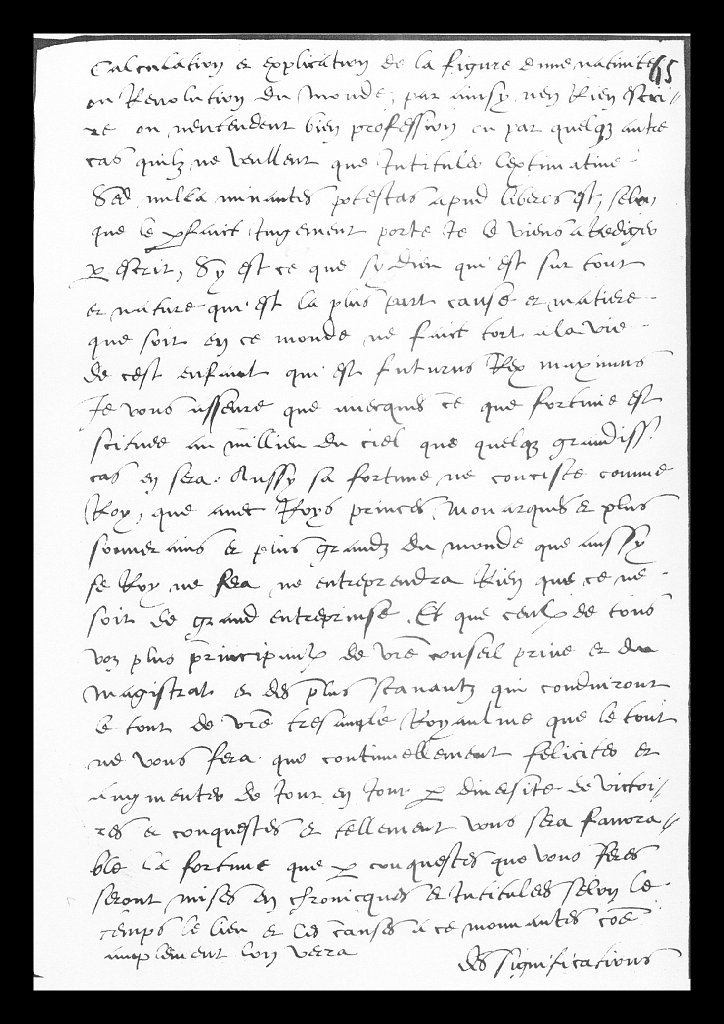 Calculation et explication de la figure d'une nativite
ou Revolution du monde, par ainsy n'en Rien escri-
re ou n'entendent bien profession ou par quelqz autre
cas quilz ne veullent que Intituler lextimative
Sed nulla minantis potestas apud liberos est, selon
que le pfaict Iugement porte Ie le viens a Rediger
p escrit, Sy est ce que sy dieu qui est sur tout
et nature qui est la plus part cause et matiere
que soit en ce monde ne faict tort a la vie
de cest enfant qui est futurus Rex maximus
Ie vous asseure que avecques ce que fortune est
scituee au millieu du ciel que quelqz grandiss
cas en sera. Aussy sa fortune ne conciste comme
Roy, que avec Roys princes, Monarques et plus
souverains et plus grandz du monde que aussy
se Roy ne fera ne entreprendra Rien que ce ne
soit de grand entreprinse. Et que ceulx de tous
voz plus principaulx de vre conseil prive et du
magistrat et des plus scavantz qui conduiront
le tout de vre tresample Royaulme que le tout
ne vous fera que continuellement feliciter et
augmenter de Iour en Iour p diversite de victoi-
res et conquestes et tellement vous sera favora-
ble la fortune que p conquestes que vous feres
seront mises en chronicques et Intitulees selon le
temps le lieu et les causes a ce mouvantes coe
amplement lon verra
des significations